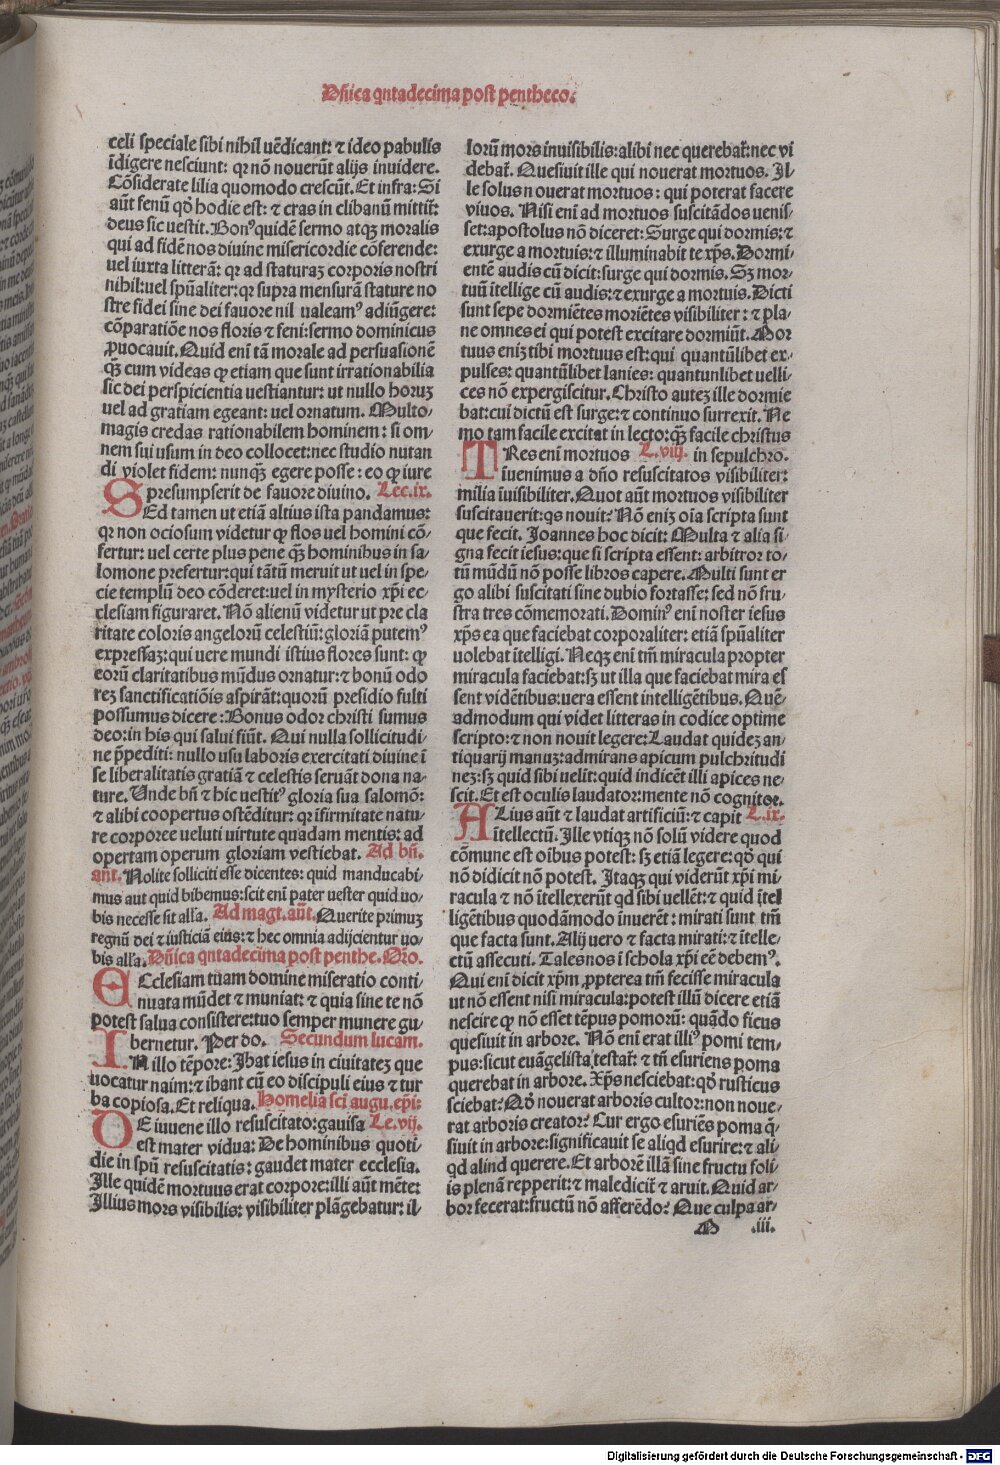 Dñica qntadecima post pentheco.
celi speciale sibi nihil uẽdicant: ⁊ ideo pabulis
ĩdigere nesciunt: qꝛ nõ nouerũt alijs inuidere.
Cõsiderate lilia quomodo crescũt. Et infra: Si
aũt fenũ qđ hodie est: ⁊ cras in clibanũ mittit̃:
deus sic uestit. Bonꝰ quidẽ sermo atqꝫ moralis
qui ad fidẽ nos diuine misericordie cõferende:
uel iuxta litterã: qꝛ ad staturaꝫ corporis nostri
nihil: uel spũaliter: qꝛ supra mensurã stature no
stre fidei sine dei fauore nil ualeamꝰ adiũgere:
cõparatiõe nos floris ⁊ feni: sermo dominicus
ꝓuocauit. Quid eni tã morale ad persuasionẽ
qꝫ̃ cum videas ꝙ etiam que sunt irrationabilia
sic dei perspicientia uestiantur: ut nullo horuꝫ
uel ad gratiam egeant: uel ornatum. Multo-
magis credas rationabilem hominem: si om-
nem sui usum in deo collocet: nec studio nutan
di violet fidem: nunqꝫ̃ egere posse: eo ꝙ iure
presumpserit de fauore diuino. Lec.ix.
SEd tamen ut etiã altius ista pandamus:
qꝛ non ociosum videtur ꝙ flos uel homini cõ-
fertur: uel certe plus pene qꝫ̃ hominibus in sa-
lomone prefertur: qui tãtũ meruit ut uel in spe-
cie templũ deo cõderet: uel in mysterio xp̃i ec-
clesiam figuraret. Nõ alienũ videtur ut pre cla
ritate coloris angelorũ celestiũ: gloriã putemꝰ
expressaꝫ: qui uere mundi istius flores sunt: ꝙ
eorũ claritatibus mũdus ornatur: ⁊ bonũ odo
reꝫ sanctificatiõis aspirãt: quorũ presidio fulti
possumus dicere: Bonus odor christi sumus
deo: in his qui salui fiũt. Qui nulla sollicitudi-
ne p̃pediti: nullo usu laboris exercitati diuine ĩ
se liberalitatis gratiã ⁊ celestis seruãt dona na-
ture. Unde bñ ⁊ hic uestitꝰ gloria sua salomõ:
⁊ alibi coopertus ostẽditur: qꝛ ĩfirmitate natu-
re corporee ueluti uirtute quadam mentis: ad
opertam operum gloriam vestiebat. Ad bñ.
añt. Nolite solliciti esse dicentes: quid manducabi-
mus aut quid bibemus: scit eni pater uester quid uo-
bis necesse sit all'a. Ad magt. añt. Querite primuꝫ
regnũ dei ⁊ iusticiã eius: ⁊ hec omnia adijcientur uo-
bis all'a. Dñica qntadecima post penthe. Oro.
ECclesiam tuam domine miseratio conti-
nuata mũdet ⁊ muniat: ⁊ quia sine te nõ
potest salua consistere: tuo semper munere gu-
bernetur. Per do. Secundum lucam.
IN illo tẽpore: Ibat iesus in ciuitateꝫ que
uocatur naim: ⁊ ibant cũ eo discipuli eius ⁊ tur
ba copiosa. Et reliqua. Homelia sci augu. ep̃i:
DE iuuene illo resuscitato: gauisa Le.vij.
est mater vidua: De hominibus quoti-
die in spũ resuscitatis: gaudet mater ecclesia.
Ille quidẽ mortuus erat corpore: illi aũt mẽte:
Illius mors visibilis: visibiliter plãgebatur: il-
lorũ mors inuisibilis: alibi nec querebat̃: nec vi
debat̃. Quesiuit ille qui nouerat mortuos. Il-
le solus nouerat mortuos: qui poterat facere
viuos. Nisi eni ad mortuos suscitãdos uenis-
set: apostolus nõ diceret: Surge qui dormis: ⁊
exurge a mortuis: ⁊ illuminabit te xp̃s. Dormi-
entẽ audis cũ dicit: surge qui dormis. Sꝫ mor-
tuũ ĩtellige cũ audis: ⁊ exurge a mortuis. Dicti
sunt sepe dormiẽtes moriẽtes visibiliter: ⁊ pla-
ne omnes ei qui potest excitare dormiũt. Mor
tuus eniꝫ tibi mortuus est: qui quantũlibet ex-
pulses: quantũlibet lanies: quantunlibet uelli-
ces nõ expergiscitur. Christo auteꝫ ille dormie
bat: cui dictũ est surge: ⁊ continuo surrexit. Ne
mo tam facile excitat in lecto: qꝫ̃ facile christus
TRes eni mortuos L.viij. in sepulchro.
ĩuenimus a dño resuscitatos visibiliter:
milia ĩuisibiliter. Quot aũt mortuos visibiliter
suscitauerit: qs nouit? Nõ eniꝫ oĩa scripta sunt
que fecit. Joannes hoc dicit: Multa ⁊ alia si-
gna fecit iesus: que si scripta essent: arbitror to-
tũ mũdũ nõ posse libros capere. Multi sunt er
go alibi suscitati sine dubio fortasse: sed nõ fru-
stra tres cõmemorati. Dominꝰ eni noster iesus
xp̃s ea que faciebat corporaliter: etiã spũaliter
uolebat ĩtelligi. Neqꝫ eni tm̃ miracula propter
miracula faciebat: sꝫ ut illa que faciebat mira es
sent vidẽtibus: uera essent intelligẽtibus. Quẽ-
admodum qui videt litteras in codice optime
scripto: ⁊ non nouit legere: Laudat quideꝫ an-
tiquarij manuꝫ: admirans apicum pulchritudi
neꝫ: sꝫ quid sibi uelit: quid indicẽt illi apices ne-
scit. Et est oculis laudator: mente nõ cognitor.
ALius aũt ⁊ laudat artificiũ: ⁊ capit L.ix.
ĩtellectũ. Ille vtiqꝫ nõ solũ videre quod
cõmune est oĩbus potest: sꝫ etiã legere: qđ qui
nõ didicit nõ potest. Itaqꝫ qui viderũt xp̃i mi-
racula ⁊ nõ ĩtellexerũt qd sibi uellẽt: ⁊ quid ĩtel
ligẽtibus quodãmodo ĩnuerẽt: mirati sunt tm̃
que facta sunt. Alij uero ⁊ facta mirati: ⁊ ĩtelle-
ctũ assecuti. Tales nos ĩ schola xp̃i eẽ debemꝰ.
Qui eni dicit xp̃m ꝓpterea tm̃ fecisse miracula
ut nõ essent nisi miracula: potest illũ dicere etiã
nescire ꝙ nõ esset tẽpus pomorũ: quãdo ficus
quesiuit in arbore. Nõ eni erat illiꝰ pomi tem-
pus: sicut euãgelista testat̃: ⁊ tm̃ esuriens poma
querebat in arbore. Xp̃s nesciebat: qđ rusticus
sciebat? Qđ nouerat arboris cultor: non noue-
rat arboris creator? Cur ergo esuriẽs poma q̃-
siuit in arbore: significauit se aliqd esurire: ⁊ ali-
qd aliud querere. Et arborẽ illã sine fructu foli-
is plenã repperit: ⁊ maledicit̃ ⁊ aruit. Quid ar-
bor fecerat: fructũ nõ afferẽdo? Que culpa ar-
.iii.
Digitalisierung gefördert durch die Deutsche Forschungsgemeinschaft - DFG